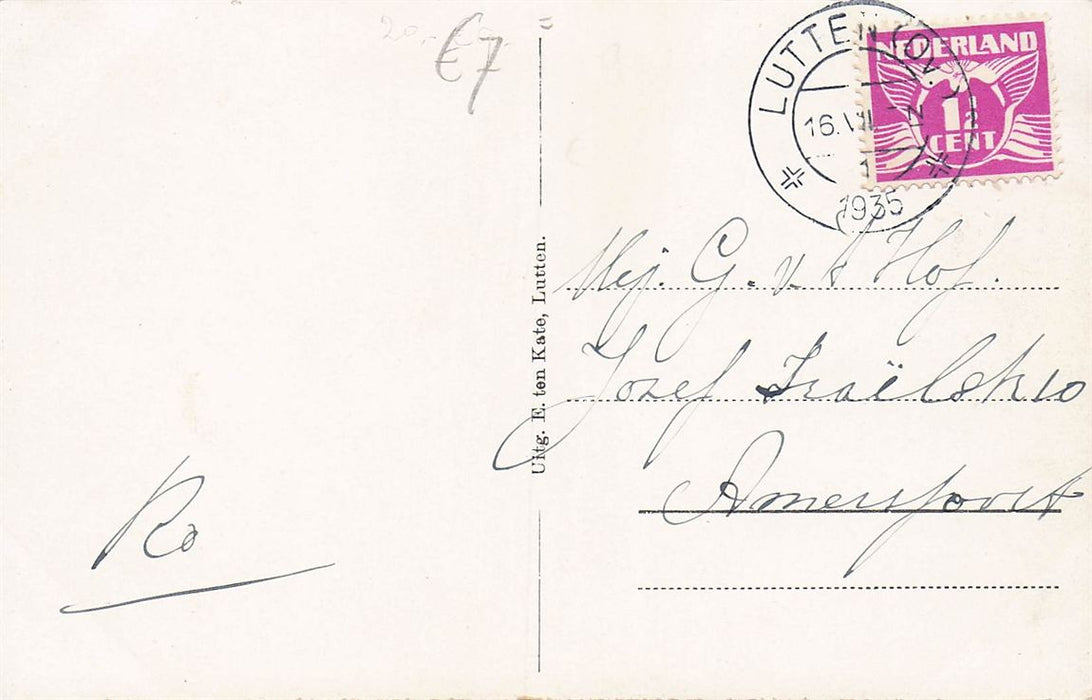 €7
LUTTEN (OV.)
16.VII
1935
NEDERLAND
1
CENT
Uitg. E. ten Kate, Lutten.
Mej. G. v. d Hof.
Jozef Israëlsk 10
Amersfoort
Ro